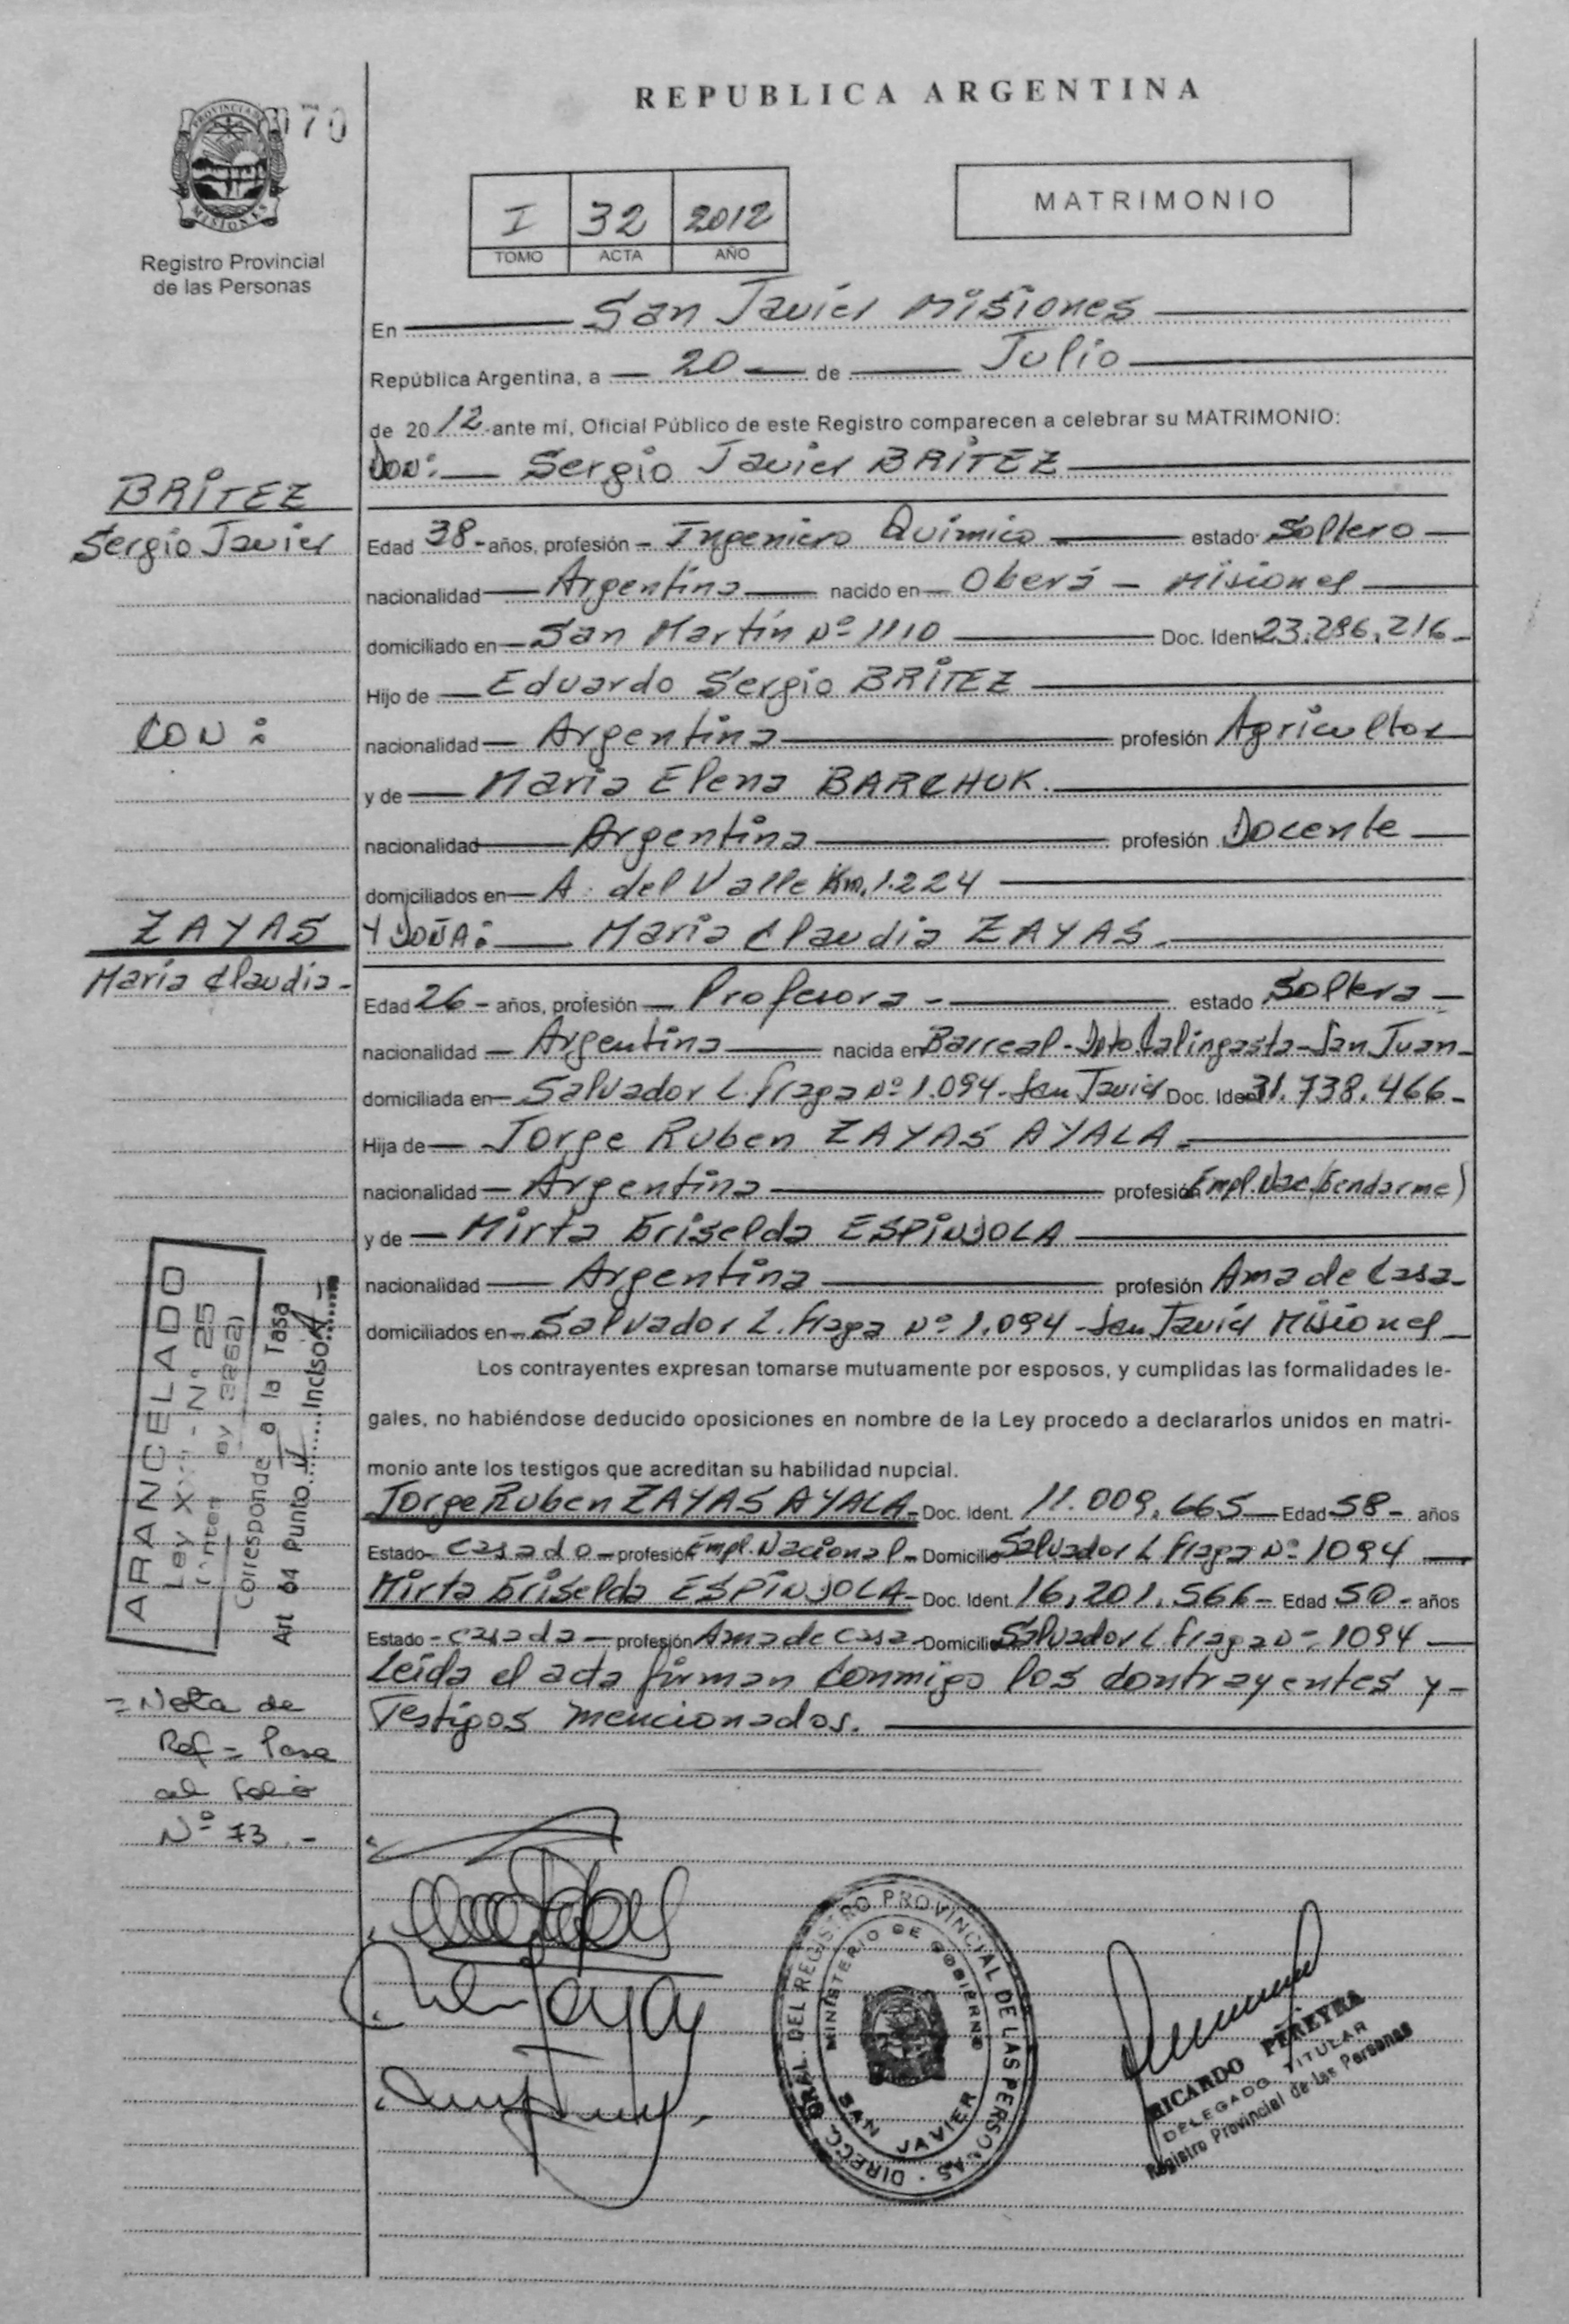 REPUBLICA ARGENTINA
PROVINCIA DE
MISIONES
170
Registro Provincial
de las Personas
I 32 2012
TOMO ACTA AÑO
MATRIMONIO
En San Javier Misiones
República Argentina, a 20 de Julio
de 2012 ante mí, Oficial Público de este Registro comparecen a celebrar su MATRIMONIO:
DON: Sergio Javier BRITEZ
Edad 38 - años, profesión - Ingeniero Químico estado Soltero
nacionalidad Argentina nacido en Oberá - Misiones
domiciliado en San Martín Nº 1110 Doc. Ident. 23.296.216
Hijo de Eduardo Sergio BRITEZ
nacionalidad Argentina profesión Agricultor
y de Maria Elena BARCHUK.
nacionalidad Argentina profesión Docente
domiciliados en A. del Valle Km. 1.224
Y DOÑA: Maria Claudia ZAYAS.
Edad 26 - años, profesión Profesora - estado Soltera
nacionalidad Argentina nacida en Barreal - Dpto Calingasta - San Juan
domiciliada en Salvador L. Fraga Nº 1.094 - San Javier Doc. Ident. 31.738.466
Hija de Jorge Ruben ZAYAS AYALA
nacionalidad Argentina profesión Empl. Nac. (Gendarme)
y de Mirta Griselda ESPINJOLA
nacionalidad Argentina profesión Ama de Casa
domiciliados en Salvador L. Fraga Nº 1.094 - San Javier Misiones
Los contrayentes expresan tomarse mutuamente por esposos, y cumplidas las formalidades le-
gales, no habiéndose deducido oposiciones en nombre de la Ley procedo a declararlos unidos en matri-
monio ante los testigos que acreditan su habilidad nupcial.
Jorge Ruben ZAYAS AYALA Doc. Ident. 11.009.665 Edad 58 - años
Estado Casado profesión Empl. Nacional Domicilio Salvador L Fraga Nº 1094
Mirta Griselda ESPINJOLA Doc. Ident. 16.201.566 Edad 50 - años
Estado casada profesión Ama de casa Domicilio Salvador L Fraga Nº 1094
Leída el acta firman conmigo los contrayentes y
Testigos mencionados.
BRITEZ
Sergio Javier
CON:
ZAYAS
Maria Claudia -
ARANCELADO
Ley - Nº 25
Corresponde a la Tasa
Art 04 Punto Inciso
= Nota de
Ref = Pasa
al folio
Nº 73. -
DIRECC. GRAL. DEL REGISTRO PROVINCIAL DE LAS PERSONAS
MINISTERIO DE GOBIERNO
SAN JAVIER
RICARDO PEREYRA
DELEGADO TITULAR
Registro Provincial de las Personas